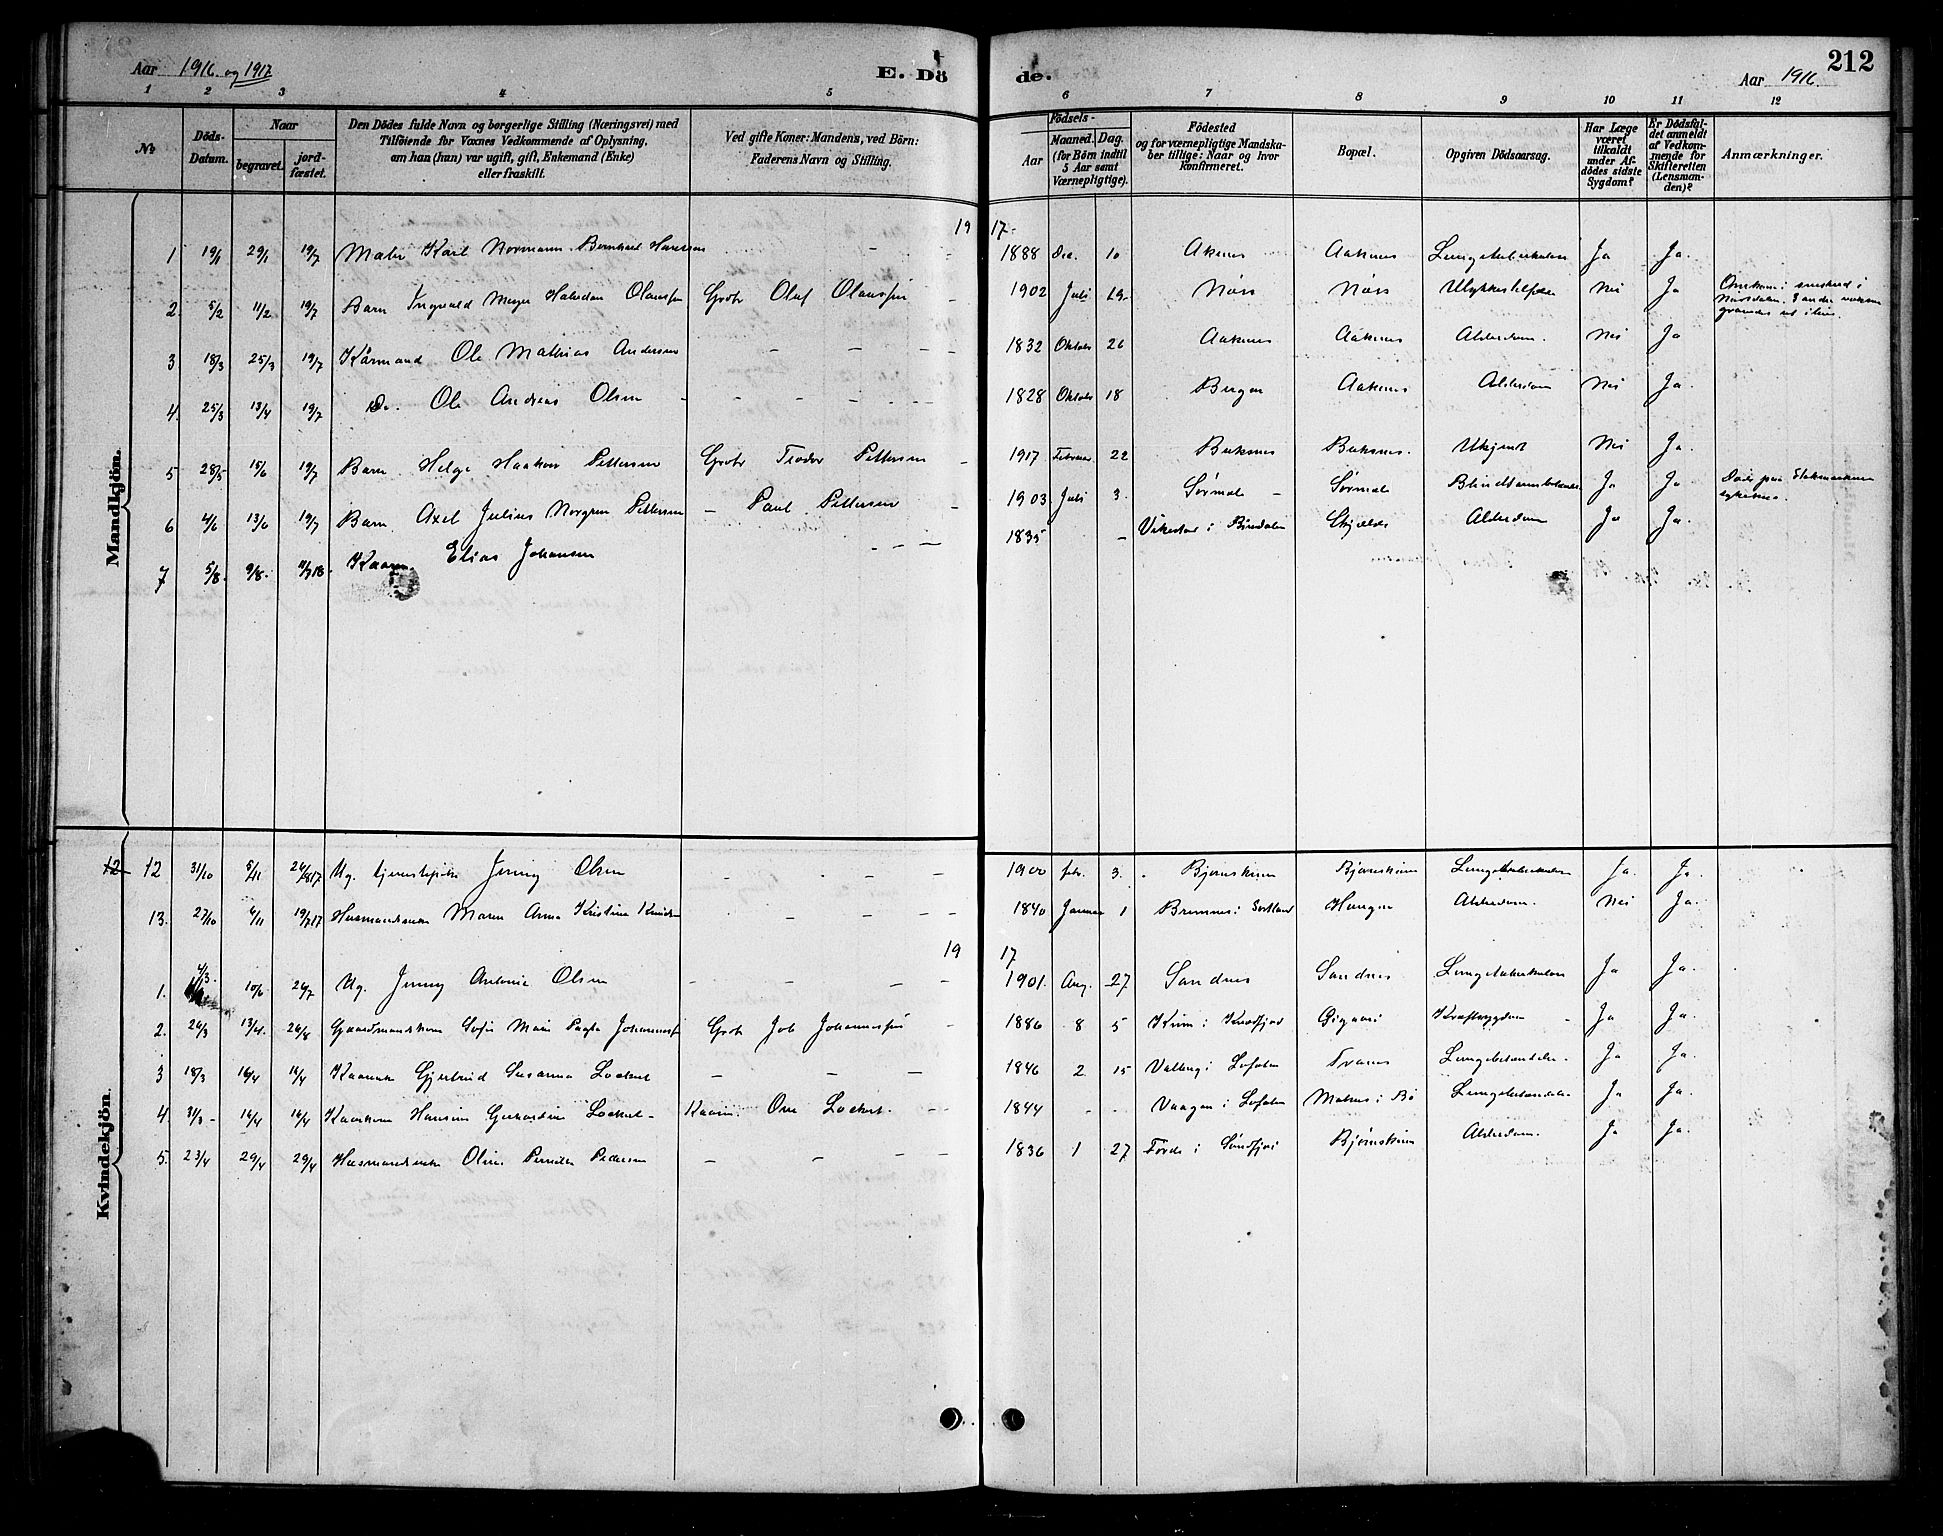 Aar 1916. og 1917
E. Dö
de.
Aar 1916.
212
1 2 3 4 5 6 7 8 9 10 11 12
No
Döds-Datum.
Naar
begravet.
jord-fæstet.
Den Dödes fulde Navn og borgerlige Stilling (Næringsvei) med
Tilföiende for Voxnes Vedkommende af Oplysning,
om han (hun) var ugift, gift, Enkemand (Enke)
eller fraskilt.
Ved gifte Koner: Mandens, ved Börn:
Faderens Navn og Stilling.
Födsels-
Aar
Maaned. Dag.
(for Börn indtil
5 Aar samt
Værnepligtige).
Födested
og for værnepligtige Mandska-
ber tillige: Naar og hvor
konfirmeret.
Bopæl.
Opgiven Dödsaarsag.
Har Læge
været
tilkaldt
under Af-
dödes sidste
Sygdom?
Er Dödsfal-
det anmeldt
af Vedkom-
mende for
Skifteretten
(Lensman-
den)?
Anmærkninger.
Mandkjön.
19 17.
1 19/1 29/1 19/7 Karl Normann Bernhard Hansen – – 1888 Dec. 10 Aknes Aaknes Lungetuberkulose Ja Ja.
2. 5/2 11/2 19/7 Barn Ingvald Meyer Halvdan Olaussen Grbr Olaf Olaussen – 1902 Juli 19 Nøss Nøss Ulykkestilfælde Nei Ja Omkom i sneskred i
3 18/3 25/3 19/7 Kårmand Ole Mathias Andersen – – – – 1832 Oktober 26 Aaknes Aaknes Alderdom. Nei Ja
4. 25/3 13/4 19/7 Do. Ole Andreas Olsen – – – – – 1828 Oktober 18 Bergen Aaknes Alderdom Nei Ja.
5 28/5 15/6 19/7 Barn Helge Haakon Pettersen Grbr Teodor Pettersen – 1917 Februar 22 Buksnes Buksnes. Ukjendt Nei Ja.
6 4/6 13/6 19/7 Barn Axel Julius Norgren Pettersen – Paul Pettersen – 1903 Juli 3. Sørmele – Sørmele Ja Ja Døde paa Stokmarknes sykehus.
7 5/8. 9/8. 11/7 18. Kaarm. Elias Johansen – – – 1835 – Vikestad i Bindalen Skjælde Alderdom Ja Ja.
Kvindekjön.
12 12 31/10 5/11 26/8 17 Ug. tjenestepike Jenny Olsen – – – – 1900 febr. 3. Bjørnskinn Bjørnskinn Lungetuberkulose Ja. Ja.
13. 27/10 4/11 19/7 17 Husmandsenke Maren Anna Kristine Knudsen – – – 1840 Januar 1 Bremnes i Sortland Alderdom. Nei Ja.
19 17
1. 4/3. 10/6 26/7 Ug. Jenny Antonie Olsen – – – – 1901. Aug. 27 Sandnes Sandnes Lungetuberkulose Ja Ja.
2. 26/3 13/4. 26/8 Gaardmandskone Sofie Marie Johannessen Grbr Job Johannessen – 1886 8 5 i Kvæfjord Kræftsygdom – Ja Ja.
3 18/3 16/4 16/4 Kaarenke Gjertrud Susanna Lockert – – – 1846 2. 15 Valberg i Lofoten Tranes Lungebetændelse. Ja Ja.
4. 31/3 – 16/4 16/4 Kaarkone Hansine Lockert – Kaarm. Ove Lockert. – – 1844 – – Vaagan i Lofoten i Bø Lungebetændelse Ja Ja.
5. 23/4 29/4 29/4 Husmandsenke Oline Pernille Pedersen – – – – 1836 1 27 Førde i Søndfjord Bjørnskinn Alderdom. Ja Ja.